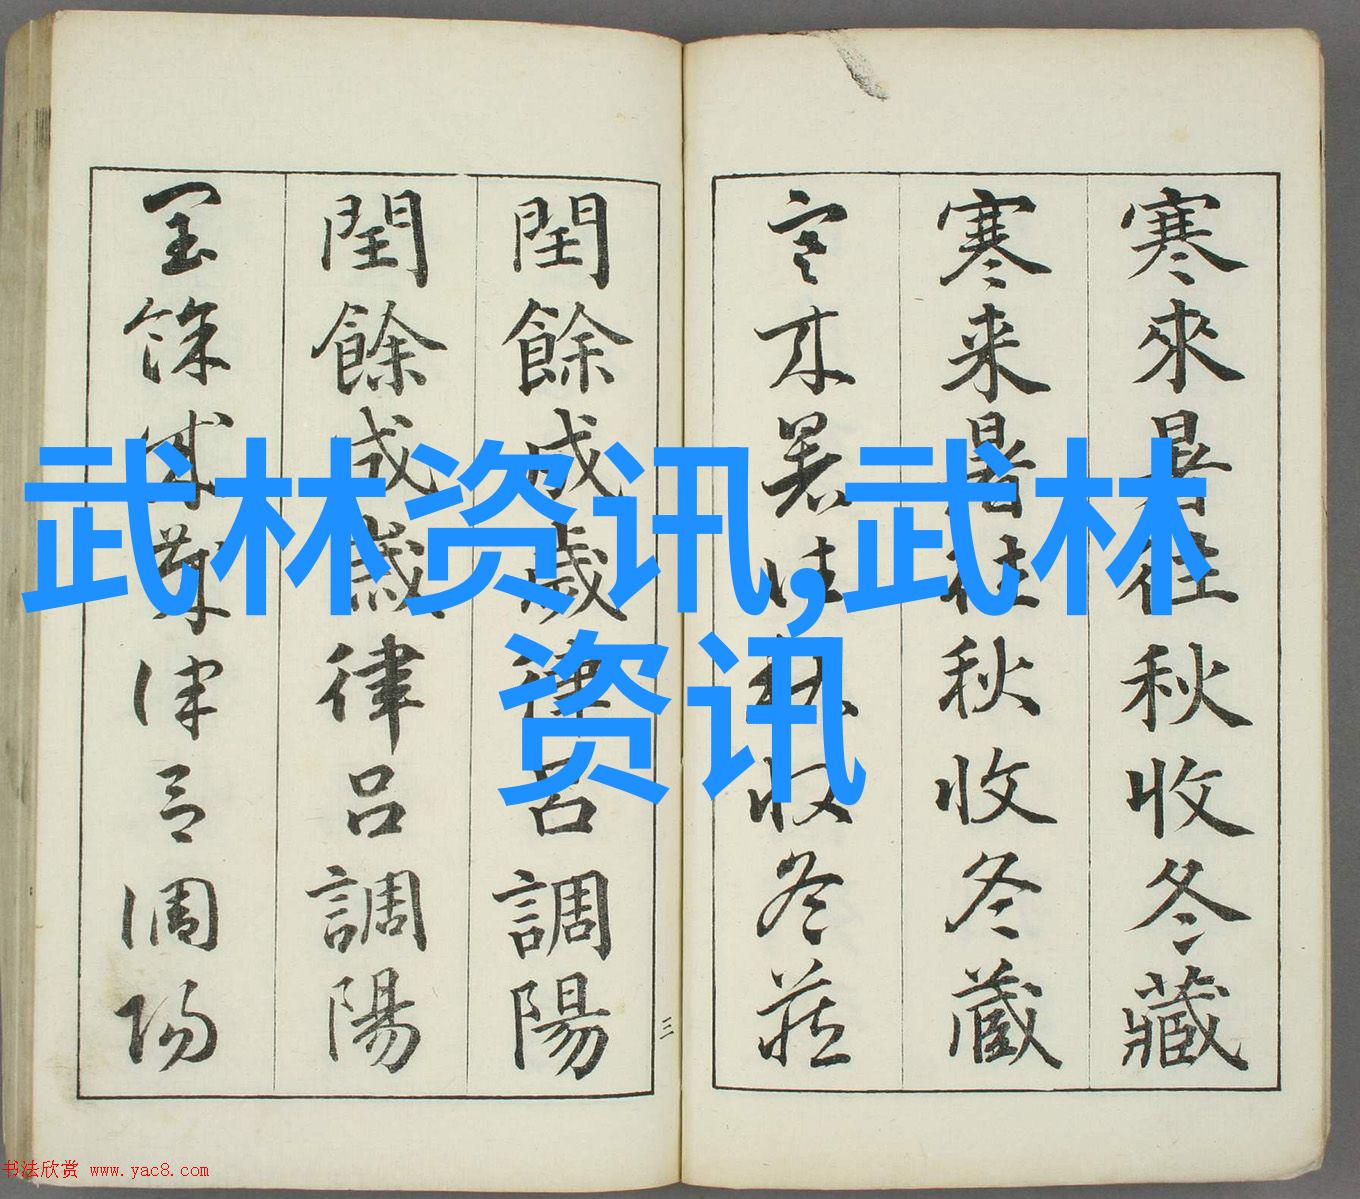 寒來暑往秋收冬藏
寒来暑往秋收冬蔵
寒来暑往秋收冬藏
閏餘成歲律呂調陽
閏餘成歲律呂調陽
閏餘成歲律呂調陽
三
武林资讯,武林
资讯
书法欣赏 www.yac8.com